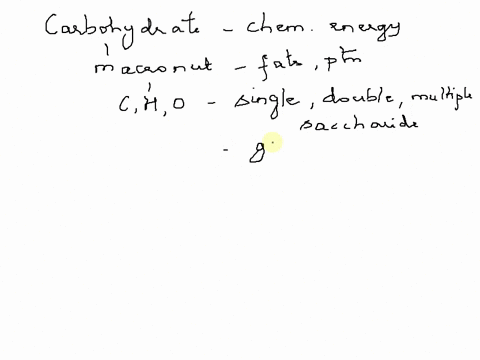 Carbohydrate - chem. energy
macronut - fats, ptn
C, H, O - single, double, multiple
saccharide
- g